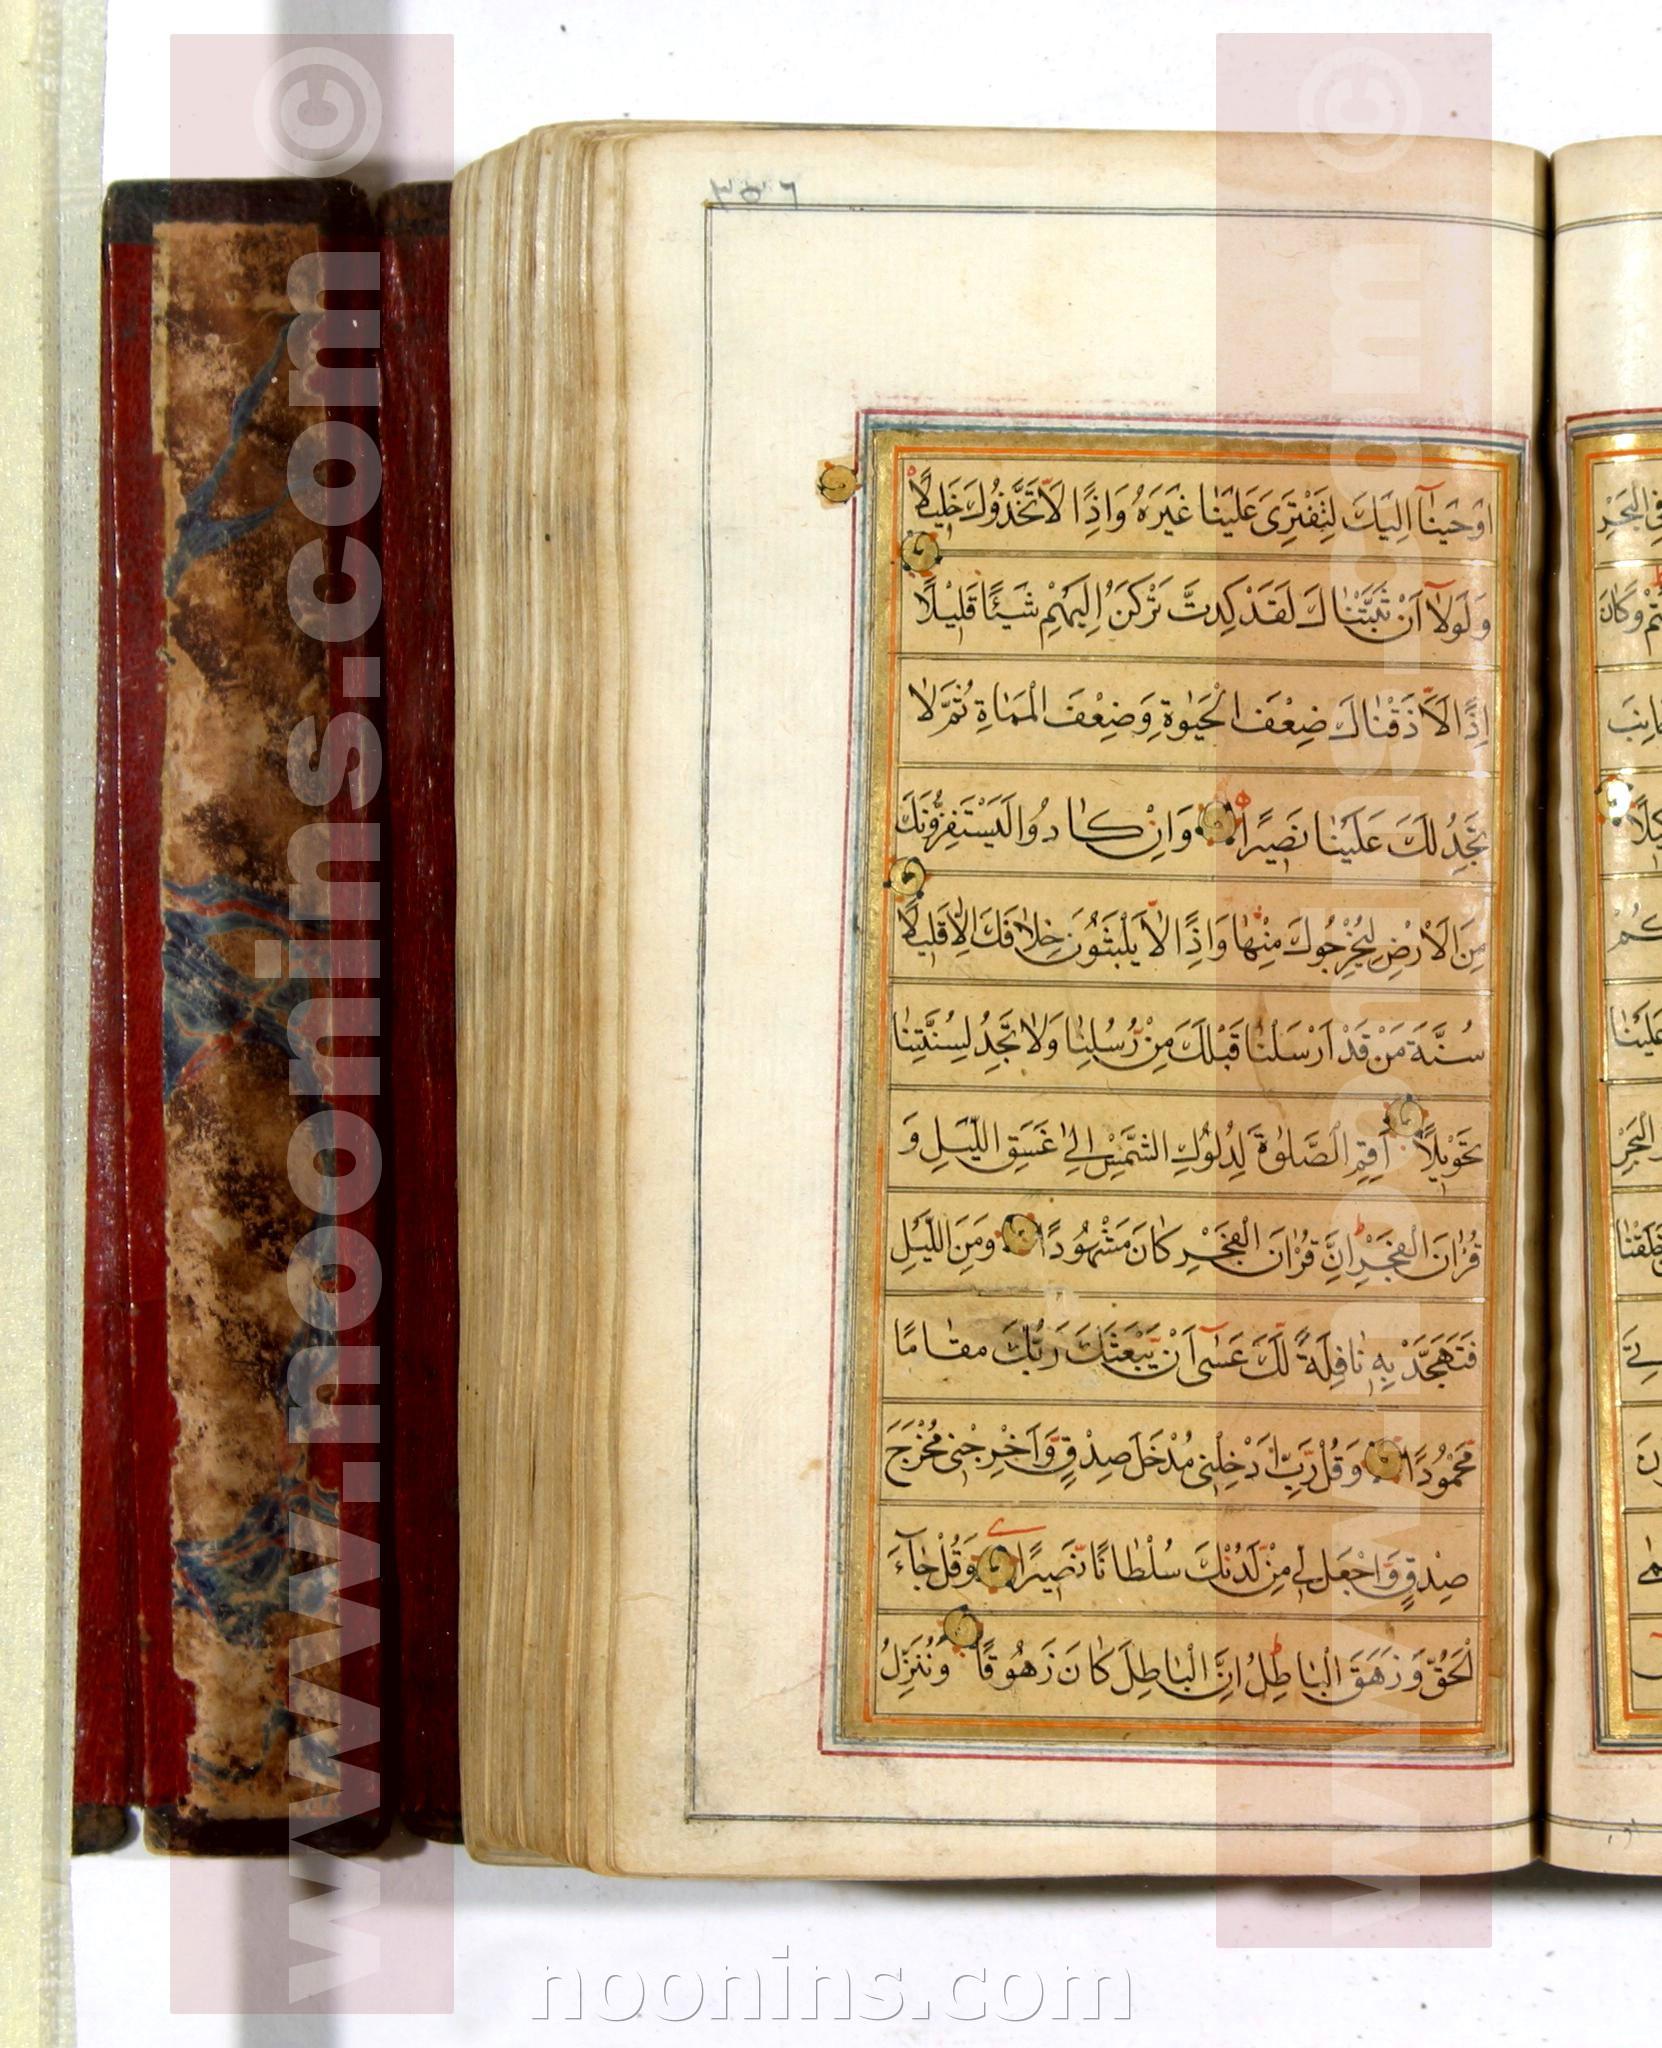 ۳۵۶
اَوْحَيْنٰٓا اِلَيْكَ لِتَفْتَرِىَ عَلَيْنٰا غَيْرَهُ وَاِذًا لَاتَّخَذُوكَ خَلِيلًا
وَلَوْلٰٓا اَنْ ثَبَّتْنٰاكَ لَقَدْ كِدْتَ تَرْكَنُ اِلَيْهِمْ شَيْئًا قَلِيْلًا
اِذًا لَاَذَقْنٰاكَ ضِعْفَ الْحَيٰوةِ وَضِعْفَ الْمَمٰاةِ ثُمَّ لٰا
تَجِدُ لَكَ عَلَيْنٰا نَصِيرًا وَاِنْ كٰادُوا لَيَسْتَفِزُّونَكَ
مِنَ الْاَرْضِ لِيُخْرِجُوكَ مِنْهٰا وَاِذًا لٰا يَلْبَثُونَ خِلٰافَكَ اِلّٰا قَلِيلًا
سُنَّةَ مَنْ قَدْ اَرْسَلْنٰا قَبْلَكَ مِنْ رُسُلِنٰا وَلٰا تَجِدُ لِسُنَّتِنٰا
تَحْوِيلًا اَقِمِ الصَّلٰوةَ لِدُلُوكِ الشَّمْسِ اِلىٰ غَسَقِ اللَّيْلِ وَ
قُرْاٰنَ الْفَجْرِ اِنَّ قُرْاٰنَ الْفَجْرِ كٰانَ مَشْهُودًا وَمِنَ اللَّيْلِ
فَتَهَجَّدْ بِهِ نٰافِلَةً لَكَ عَسٰٓى اَنْ يَبْعَثَكَ رَبُّكَ مَقٰامًا
مَحْمُودًا وَقُلْ رَبِّ اَدْخِلْنِى مُدْخَلَ صِدْقٍ وَاَخْرِجْنِى مُخْرَجَ
صِدْقٍ وَاجْعَلْ لِى مِنْ لَدُنْكَ سُلْطٰانًا نَصِيرًا وَقُلْ جٰٓاءَ
الْحَقُّ وَزَهَقَ الْبٰاطِلُ اِنَّ الْبٰاطِلَ كٰانَ زَهُوقًا وَنُنَزِّلُ
www.noonins.com ©
www.noonins.com ©
noonins.com